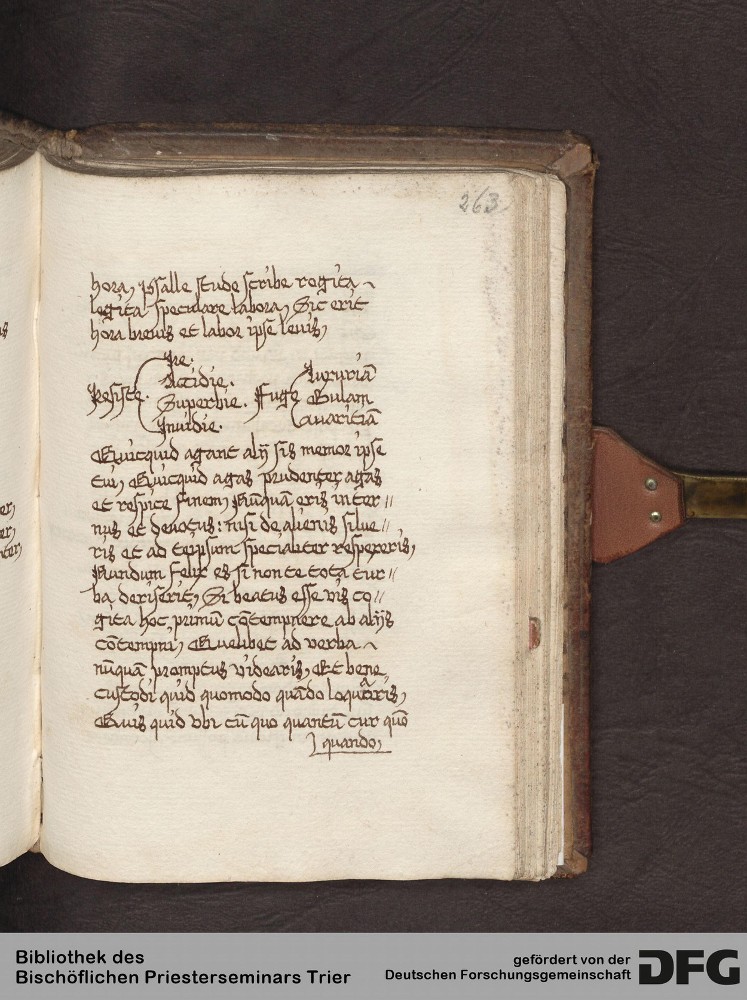 263
hora, psalle stude scribe rogita
legita speculare labora, Sic erit
hora brevis et labor ipse levis,
Ire.
Accidie.
Resiste. Superbie.
Invidie.
Luxuriā
Fuge Gulam
Avaritiā
Quicquid agant alij sis memor ipse
tui, Quicquid agas prudenter agas
et respice finem, Nūquā eris inter//
nus et devotus: nisi de alienis silue//
ris et ad teipsum specialiter respexeris,
Nundum felix es si non te tota tur//
ba deriserit, Si beatus esse vis co//
gita hoc primū cōtempnere ab alijs
cōtempni, Quelibet ad verba
nūquā promptus videaris, Et bene
custodi quid quomodo quādo loquaris,
Quis quid vbi cū quo quantū cur quō
quando,
er,
er,
iter,
Bibliothek des
Bischöflichen Priesterseminars Trier
gefördert von der
Deutschen Forschungsgemeinschaft
DFG